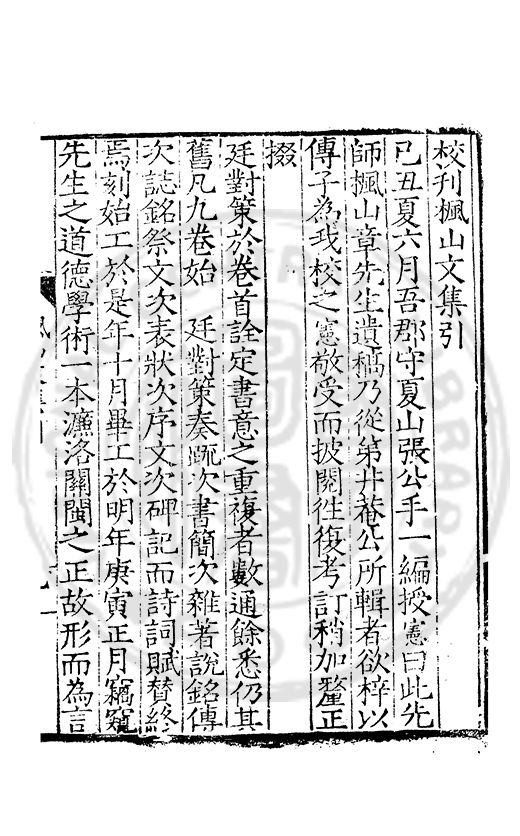 校刋楓山文集引
己丑夏六月吾郡守夏山張公手一編授憲曰此先
師楓山章先生遺稿乃從弟井菴公所輯者欲梓以
傳子為我校之憲敬受而披閱往復考訂稍加釐正
掇
廷對策於卷首詮定書意之重複者數通餘悉仍其
舊凡九卷始 廷對策奏疏次書簡次雜著說銘傳
次誌銘祭文次表狀次序文次碑記而詩詞賦替終
焉刻始工於是年十月畢工於明年庚寅正月竊窺
先生之道德學術一本濂洛關閩之正故形而為言